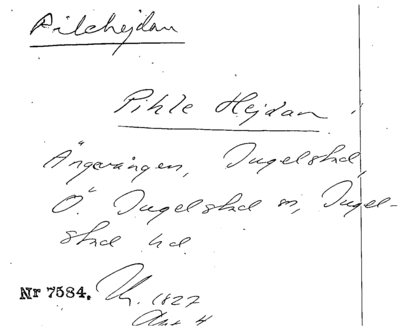 Pilehejdan
Pihle Hejdan
Ängavången, Ingelstad,
Ö. Ingelstad sn, Ingel-
stad hd
Nr 7584. 1827
Akt 4